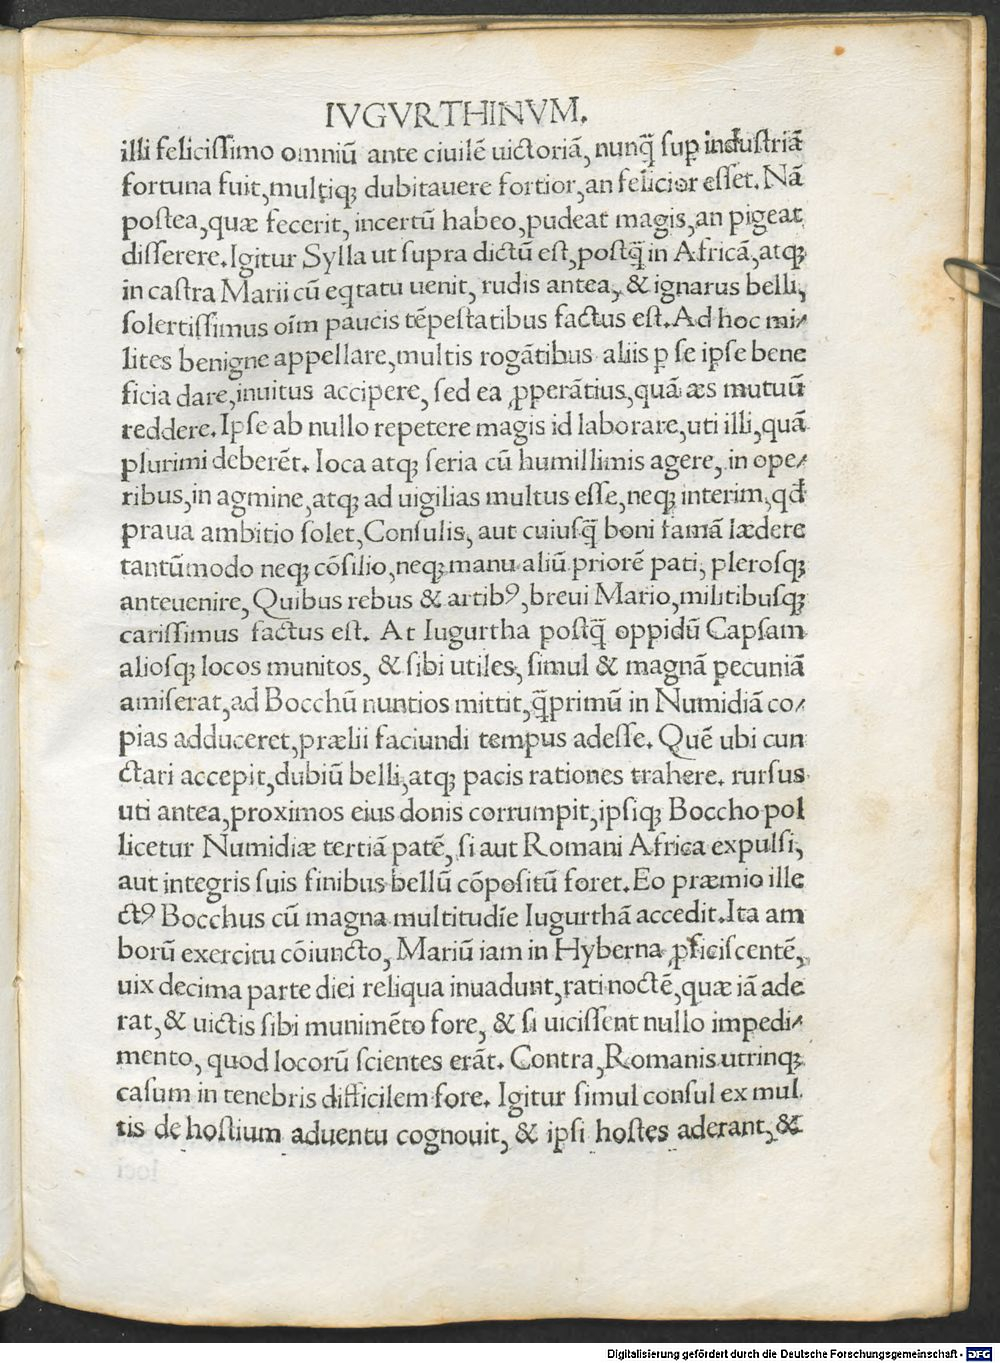 IVGVRTHINVM.
illi felicissimo omniū ante ciuilē uictoriā, nunq̄ sup industriā
fortuna fuit, multiq; dubitauere fortior, an felicior esset. Nā
postea, quæ fecerit, incertū habeo, pudeat magis, an pigeat
disserere. Igitur Sylla ut supra dictū est, postq̄ in Africā, atq;
in castra Marii cū eqtatu uenit, rudis antea, & ignarus belli,
solertissimus oīm paucis tēpestatibus factus est. Ad hoc mi⸗
lites benigne appellare, multis rogātibus aliis p se ipse bene
ficia dare, inuitus accipere, sed ea ꝓperātius, quā æs mutuū
reddere. Ipse ab nullo repetere magis id laborare, uti illi, quā
plurimi deberēt. Ioca atq; seria cū humillimis agere, in ope⸗
ribus, in agmine, atq; ad uigilias multus esse, neq; interim, qđ
praua ambitio solet, Consulis, aut cuiusq̄ boni famā lædere
tantūmodo neq; cōsilio, neq; manu aliū priorē pati, plerosq;
anteuenire, Quibus rebus & artibꝰ, breui Mario, militibusq;
carissimus factus est. At Iugurtha postq̄ oppidū Capsam
aliosq; locos munitos, & sibi utiles, simul & magnā pecuniā
amiserat, ad Bocchū nuntios mittit, q̄primū in Numidiā co⸗
pias adduceret, prælii faciundi tempus adesse. Quē ubi cun
ctari accepit, dubiū belli, atq; pacis rationes trahere. rursus
uti antea, proximos eius donis corrumpit, ipsiq; Boccho pol
licetur Numidiæ tertiā patē, si aut Romani Africa expulsi,
aut integris suis finibus bellū cōpositū foret. Eo præmio ille
ctꝰ Bocchus cū magna multitudīe Iugurthā accedit. Ita am
borū exercitu cōiuncto, Mariū iam in Hyberna ꝓficiscentē,
uix decima parte diei reliqua inuadunt, rati noctē, quæ iā ade
rat, & uictis sibi munimēto fore, & si uicissent nullo impedi⸗
mento, quod locorū scientes erāt. Contra, Romanis utrinq;
casum in tenebris difficilem fore. Igitur simul consul ex mul
tis de hostium aduentu cognouit, & ipsi hostes aderant, &
Digitalisierung gefördert durch die Deutsche Forschungsgemeinschaft - DFG